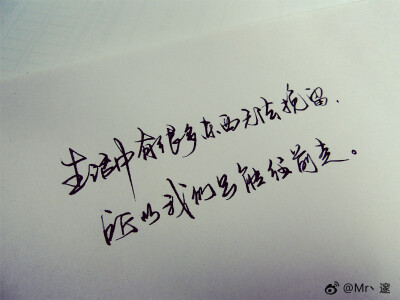 生活中有很多东西无法挽留.
所以我们只能往前走。
@Mr丶邃